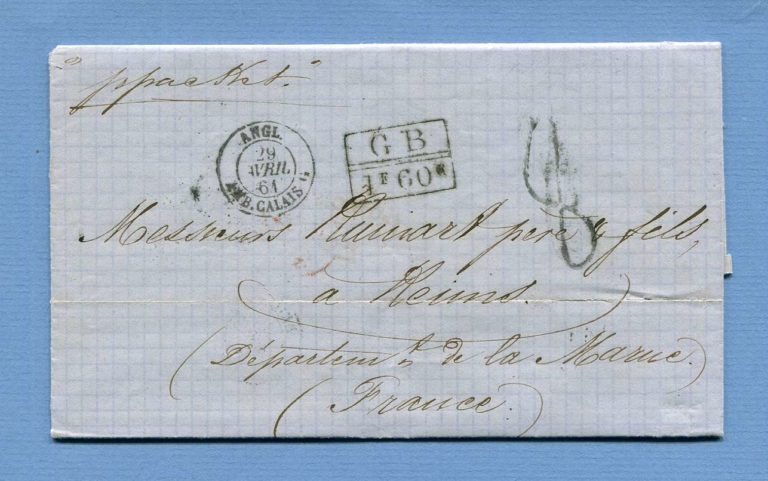 "ppacket."
ANGL.
29
AVRIL
61
AMB. CALAIS G
G B
1F 60c
8
Messieurs Ruinart père & fils,
à Reims.
(Départem.t de la Marne.)
(France.)